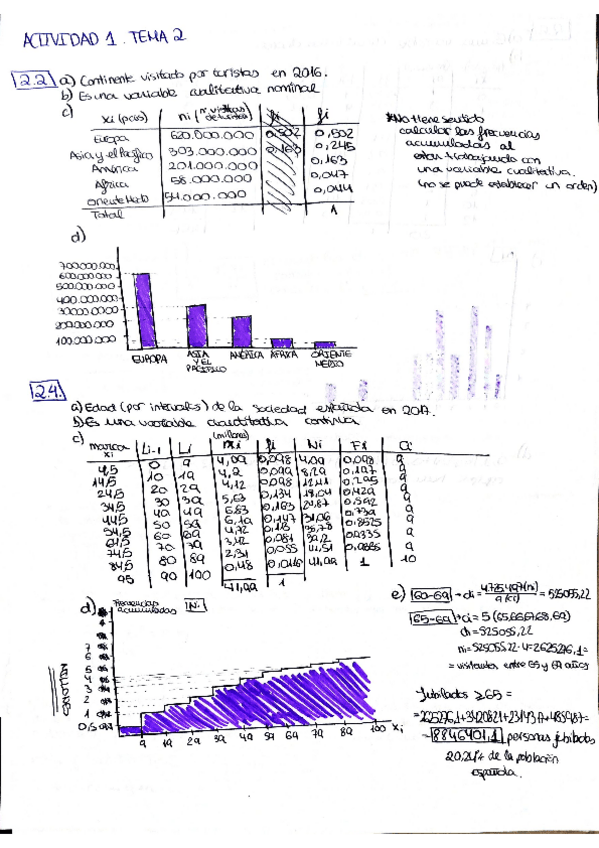 ACTIVIDAD 1. TEMA 2
2.2 a) Continente visitado por turistas en 2016.
b) Es una variable cualitativa nominal
c)
xi (país) ni (nº visitas de turistas) fi
Europa 620.000.000 0,502
Asia y el Pacífico 303.000.000 0,245
América 201.000.000 0,163
África 58.000.000 0,047
Oriente Medio 54.000.000 0,044
Total 1
*No tiene sentido
calcular las frecuencias
acumuladas al
estar trabajando con
una variable cualitativa.
(no se puede establecer un orden)
d)
700.000.000
600.000.000
500.000.000
400.000.000
300.000.000
200.000.000
100.000.000
EUROPA ASIA Y EL PACÍFICO AMÉRICA ÁFRICA ORIENTE MEDIO
2.4.
a) Edad (por intervalos) de la sociedad española en 2017.
b) Es una variable cuantitativa continua
c)
marca xi Li-1 Li (millones) ni fi Ni Fi Ci
4,5 0 9 4,09 0,098 4,09 0,098 9
14,5 10 19 4,2 0,099 8,29 0,197 9
24,5 20 29 4,12 0,098 12,41 0,295 9
34,5 30 39 5,63 0,134 18,04 0,429 9
44,5 40 49 6,83 0,163 24,87 0,592 9
54,5 50 59 6,19 0,147 31,06 0,739 9
64,5 60 69 4,72
74,5 70 79 3,42 0,081 39,2
84,5 80 89 2,31 0,055 41,51
95 90 100 0,48 0,0116 41,99 1 10
41,99 1
d) Frecuencias acumuladas Ni
7
6
5
4
3
2
1
0,5
9 19 29 39 49 59 69 79 89 100 xi
e) 60-69 → di = = 525055,22
65-69 → ci = 5 (65,66,67,68,69)
di = 525055,22
ni = 525055,22·4 = 2625276,1 =
= visitantes entre 65 y 69 años
Jubilados ≥65 =
8846401,1 personas jubiladas
de la población
española.